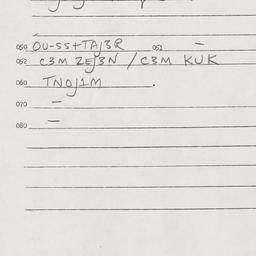 050 OU-SS+TAJ3R 051 —
052 C3M ZEJ3N / C3M KUK
060 TNOJ1M .
070 —
080 —